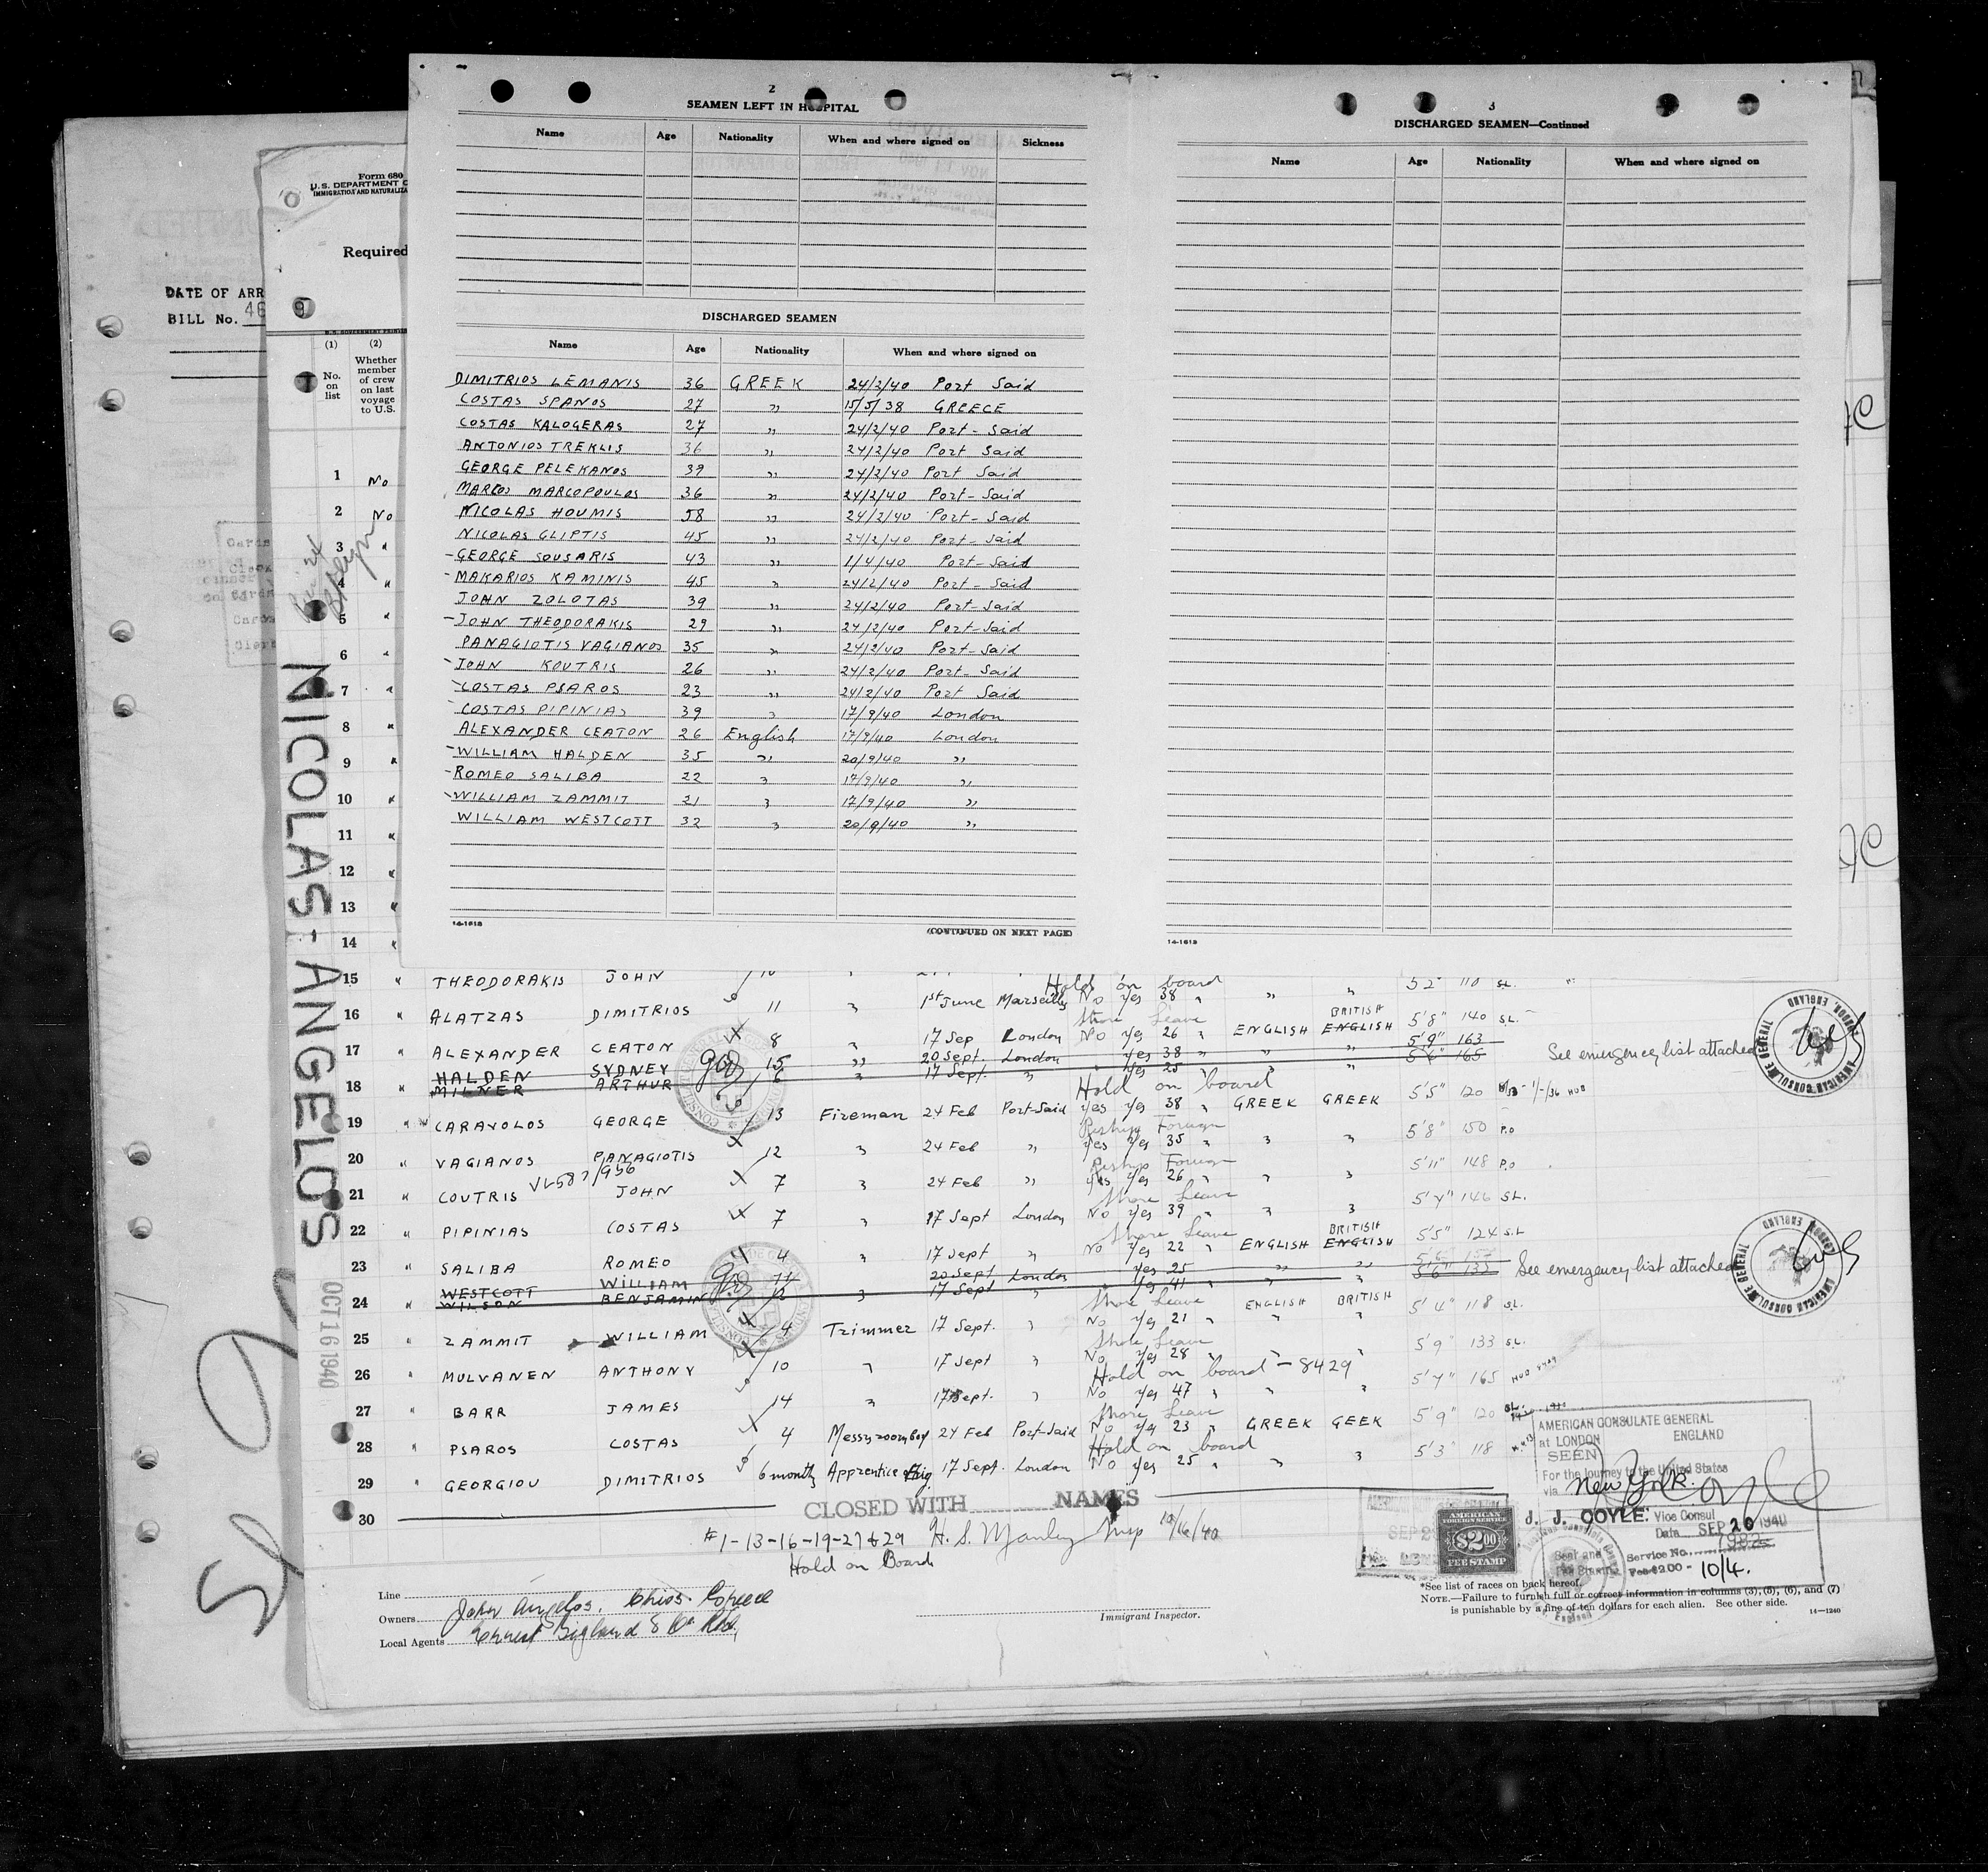 2
SEAMEN LEFT IN HOSPITAL
Name Age Nationality When and where signed on Sickness
DISCHARGED SEAMEN
Name Age Nationality When and where signed on
DIMITRIOS LEMANIS 36 GREEK 24/2/40 Port Said
COSTAS SPANOS 27 " 15/5/38 GREECE
COSTAS KALOGERAS 27 " 24/2/40 Port-Said
ANTONIOS TREKLIS 36 " 24/2/40 Port Said
GEORGE PELEKANOS 39 " 24/2/40 Port Said
MARCOS MARCOPOULOS 36 " 24/2/40 Port-Said
NICOLAS HOUMIS 58 " 24/2/40 Port-Said
NICOLAS GLIPTIS 45 " 24/2/40 Port-Said
GEORGE SOUSARIS 43 " 1/4/40 Port-Said
MAKARIOS KAMINIS 45 " 24/2/40 Port-Said
JOHN ZOLOTAS 39 " 24/2/40 Port-Said
JOHN THEODORAKIS 29 " 24/2/40 Port-Said
PANAGIOTIS VAGIANOS 35 " 24/2/40 Port-Said
JOHN KOUTRIS 26 " 24/2/40 Port-Said
COSTAS PSAROS 23 " 24/2/40 Port Said
COSTAS PIPINIAS 39 " 17/9/40 London
ALEXANDER CEATON 26 English 17/9/40 London
WILLIAM HALDEN 35 " 20/9/40 "
ROMEO SALIBA 22 " 17/9/40 "
WILLIAM ZAMMIT 21 " 17/9/40 "
WILLIAM WESTCOTT 32 " 20/9/40 "
14-1613
(CONTINUED ON NEXT PAGE)
3
DISCHARGED SEAMEN—Continued
Name Age Nationality When and where signed on
14-1613
Form 680
U.S. DEPARTMENT O
IMMIGRATION AND NATURALIZA
Required
DATE OF ARR
BILL No. 46
9
(1) (2)
No. on list
Whether member of crew on last voyage to U.S.
1 No
2 No
3 "
4 "
5 "
6 "
7 "
8 "
9 "
10 "
11 "
12 "
13 "
14 "
NICOLAS ANGELOS
OCT 16 1940
Hold on board
15 " THEODORAKIS JOHN 5 2" 110 SL.
16 " ALATZAS DIMITRIOS 11 " 1st June Marseilly No yes 38 " " " 5'8" 140 SL.
Shore Leave BRITISH
17 " ALEXANDER CEATON 8 " 17 Sep London No yes 26 " ENGLISH ENGLISH 5'9" 163
HALDEN SYDNEY 15 " 20 Sept. London yes 38 " " " 5'6" 165 See emergency list attached
18 " MILNER ARTHUR 6 " 17 Sept. " yes 25 " "
Hold on board
19 " CARAVOLOS GEORGE 13 Fireman 24 Feb Port-Said yes yes 38 " GREEK GREEK 5'5" 120
Reship Foreign
20 " VAGIANOS PANAGIOTIS 12 " 24 Feb " yes yes 35 " " " 5'8" 150 P.O
Reship Foreign
21 " COUTRIS JOHN 7 " 24 Feb " yes yes 26 " " " 5'11" 148 P.O
Shore Leave
22 " PIPINIAS COSTAS 7 " 17 Sept London No yes 39 " " " 5'4" 146 SL.
Shore Leave BRITISH
23 " SALIBA ROMEO 4 " 17 Sept " No yes 22 " ENGLISH ENGLISH 5'5" 124 S.L
WESTCOTT WILLIAM 14 20 Sept London yes 25 " "
24 " WILSON BENJAMIN " 17 Sept " yes 41 " " " 5'6" 133 See emergency list attached
Shore Leave ENGLISH BRITISH
25 " ZAMMIT WILLIAM 4 Trimmer 17 Sept. " No yes 21 " " " 5'4" 118 SL.
Shore Leave
26 " MULVANEN ANTHONY 10 " 17 Sept " No yes 28 " 5'9 133 SL.
Hold on board - 8429
27 " BARR JAMES 14 " 17 Sept. " No yes 47 " " " 5'7" 165
Shore Leave
28 " PSAROS COSTAS 4 Messroomboy 24 Feb Port-Said No yes 23 " GREEK GEEK 5'9" 120 SL.
Hold on board
29 " GEORGIOU DIMITRIOS 6 months Apprentice Eng. 17 Sept. London No yes 25 " " " 5'3" 118
30
CLOSED WITH NAMES
#1-13-16-19-27 & 29 H. S. Manley Insp 10/16/40
Hold on Board
Line
Owners John Angelos, Chios Greece
Local Agents Ernest Bigland & Co Ltd,
Immigrant Inspector.
AMERICAN CONSULATE GENERAL
at LONDON ENGLAND
SEEN
For the journey to the United States
via New York.
J. J. COYLE: Vice Consul
Date SEP 20 1940
Service No. 7982
Fee $2.00 - 10/4.
Seal and Fee Stamp
AMERICAN FOREIGN SERVICE
$2.00
FEE STAMP
AMERICAN CONSULATE GENERAL LONDON, ENGLAND
AMERICAN CONSULATE GENERAL LONDON, ENGLAND
*See list of races on back hereof.
NOTE.—Failure to furnish full or correct information in columns (3), (5), (6), and (7)
is punishable by a fine of ten dollars for each alien. See other side.
14—1240